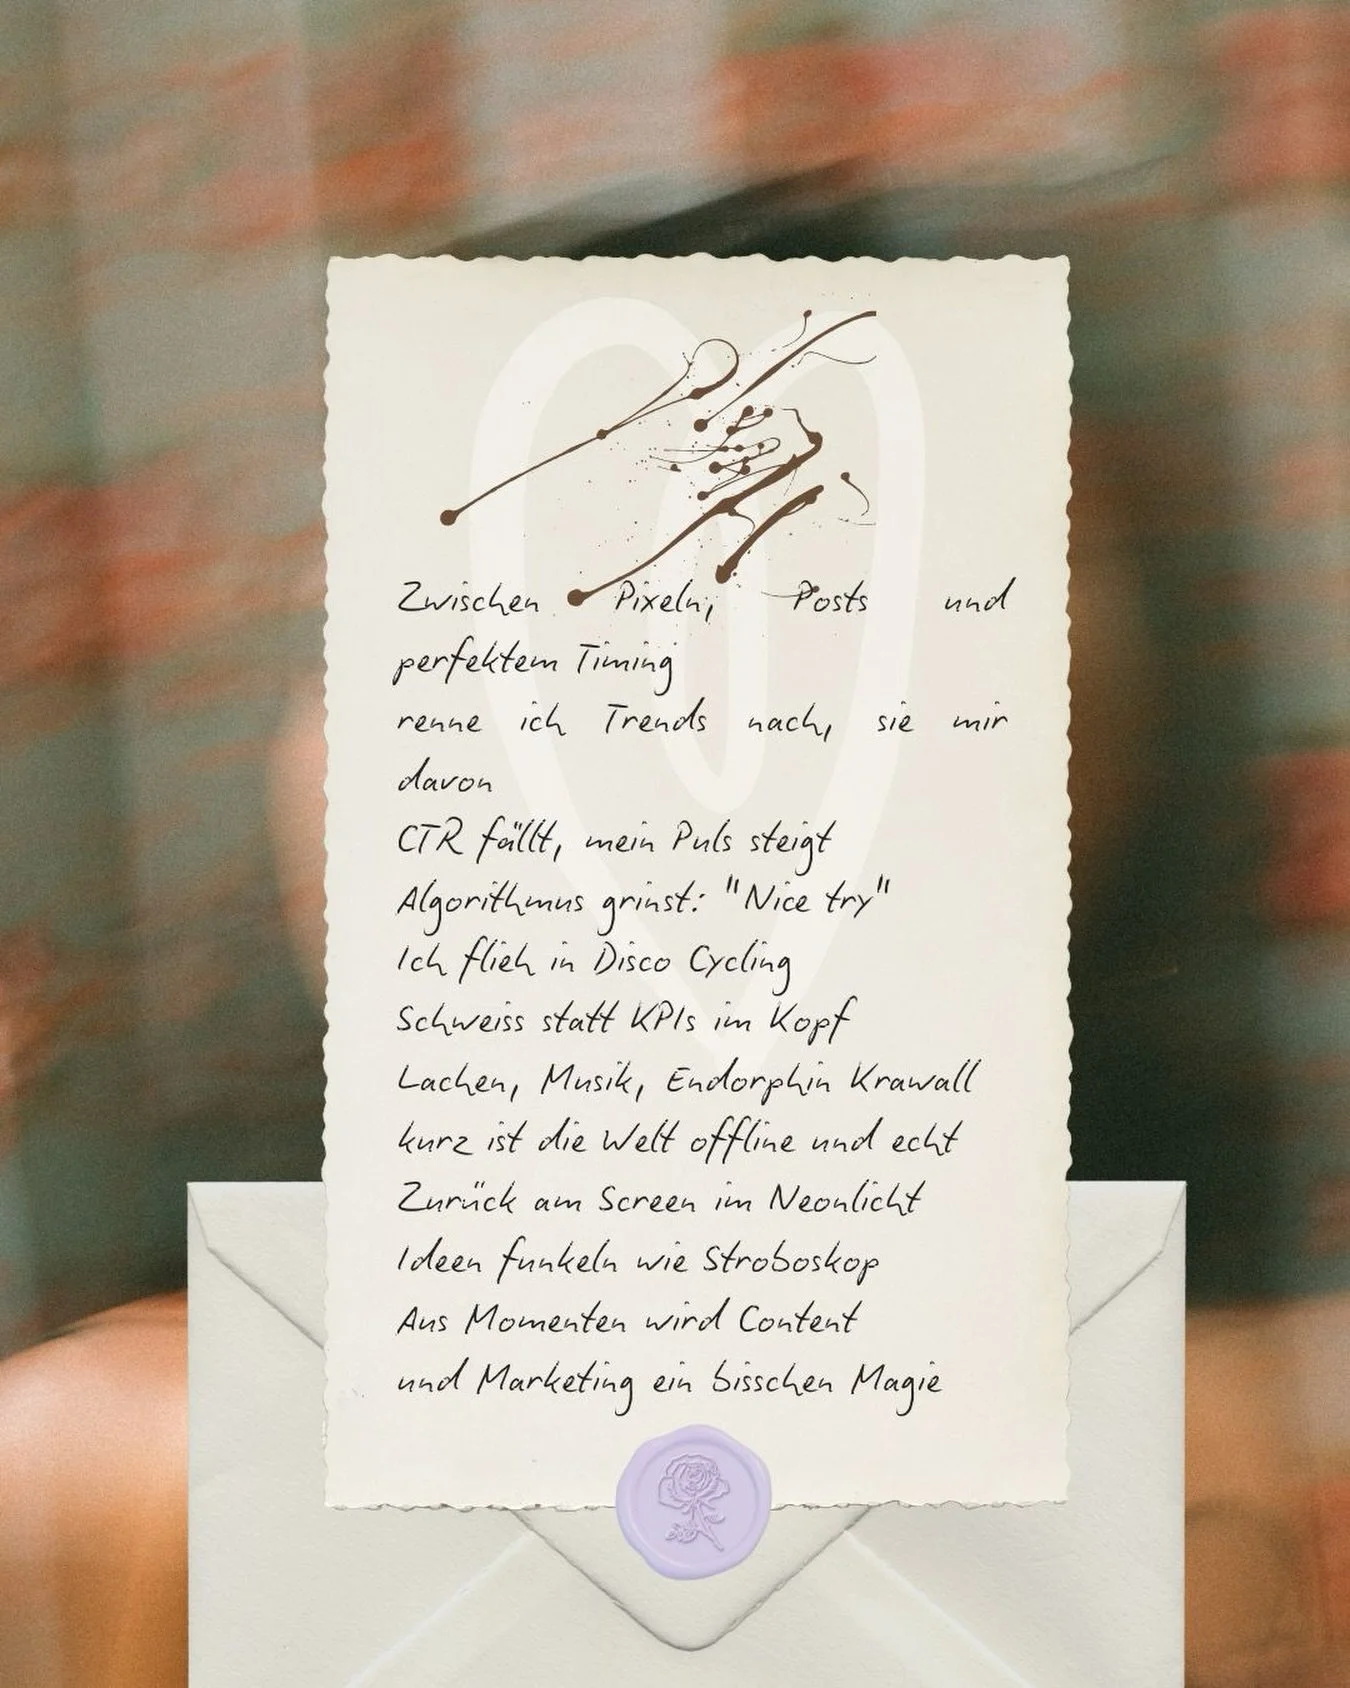 Zwischen Pixeln, Posts und
perfektem Timing
renne ich Trends nach, sie mir
davon
CTR fällt, mein Puls steigt
Algorithmus grinst: "Nice try"
Ich flieh in Disco Cycling
Schweiss statt KPIs im Kopf
Lachen, Musik, Endorphin Krawall
kurz ist die Welt offline und echt
Zurück am Screen im Neonlicht
Ideen funkeln wie Stroboskop
Aus Momenten wird Content
und Marketing ein bisschen Magie